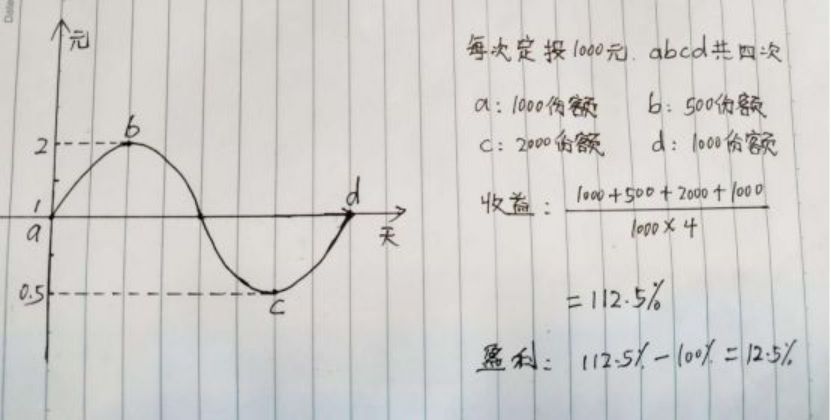 元
2
b
1
a
d
天
0.5
c
每次定投1000元. abcd共四次
a: 1000份额 b: 500份额
c: 2000份额 d: 1000份额
收益: 1000+500+2000+1000
1000×4
=112.5%
盈利: 112.5%-100%=12.5%